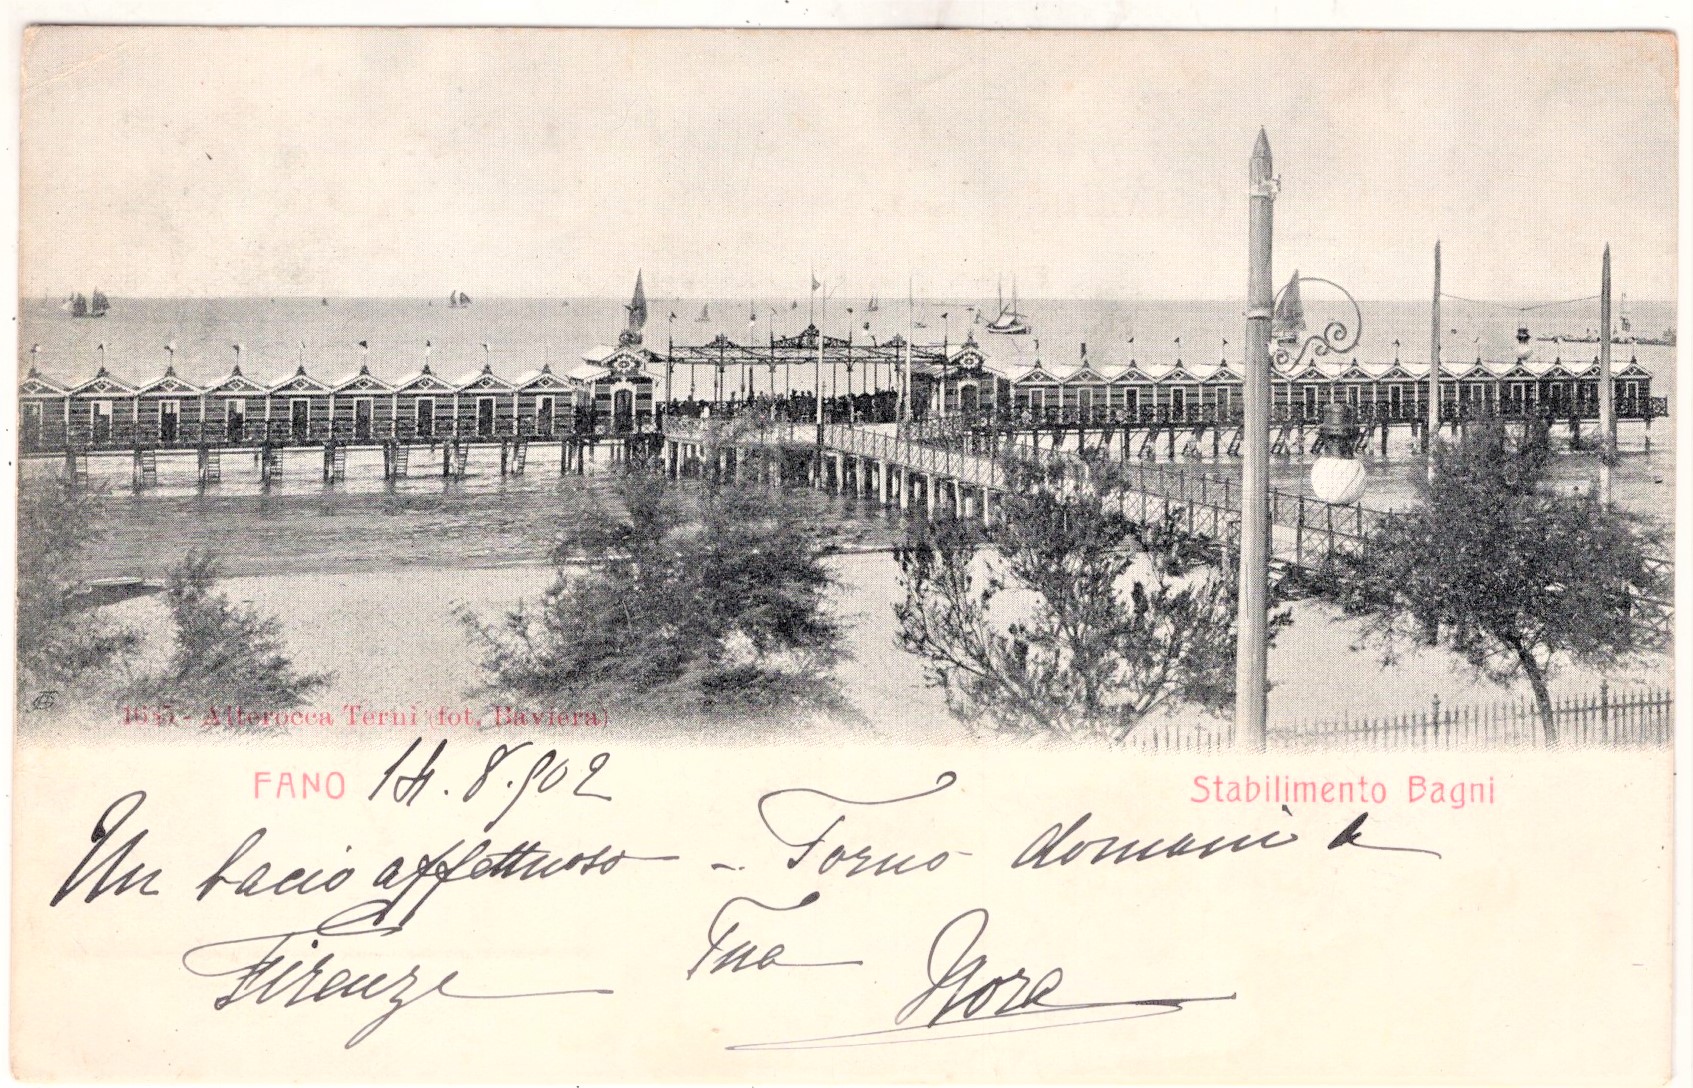 Alterocca Terni (fot. Baviera)
FANO 14.8.902 Stabilimento Bagni
Un bacio affettuoso - Torno domani a
Firenze Tua Nora